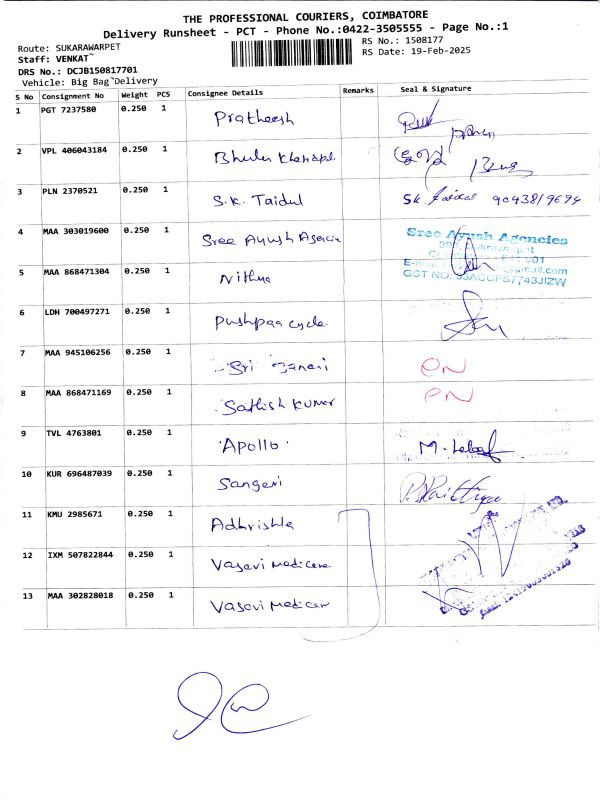 THE PROFESSIONAL COURIERS, COIMBATORE
Delivery Runsheet - PCT - Phone No.:0422-3505555 - Page No.:1
Route: SUKARAWARPET
RS No.: 1508177
Staff: VENKAT
RS Date: 19-Feb-2025
DRS No.: DCJB150817701
Vehicle: Big Bag Delivery
S No Consignment No Weight PCS Consignee Details Remarks Seal & Signature
1 PGT 7237580 0.250 1 Pratheesh
2 VPL 406043184 0.250 1
3 PLN 2370521 0.250 1 S.K. Taidul Sk. 9043819694
4 MAA 303019600 0.250 1 Sree Ayush Agencie Sree Ayush Agencies
5 MAA 868471304 0.250 1 Nithya GST NO.
6 LDH 700497271 0.250 1 Pushpaa cycle
7 MAA 945106256 0.250 1 Sri ON
8 MAA 868471169 0.250 1 Sathish Kumar PN
9 TVL 4763801 0.250 1 Apollo M.
10 KUR 696487039 0.250 1 Sangeri
11 KMU 2985671 0.250 1 Adhrishla
12 IXM 507822844 0.250 1 Vasavi Medicare
13 MAA 302828018 0.250 1 Vasavi Medicar